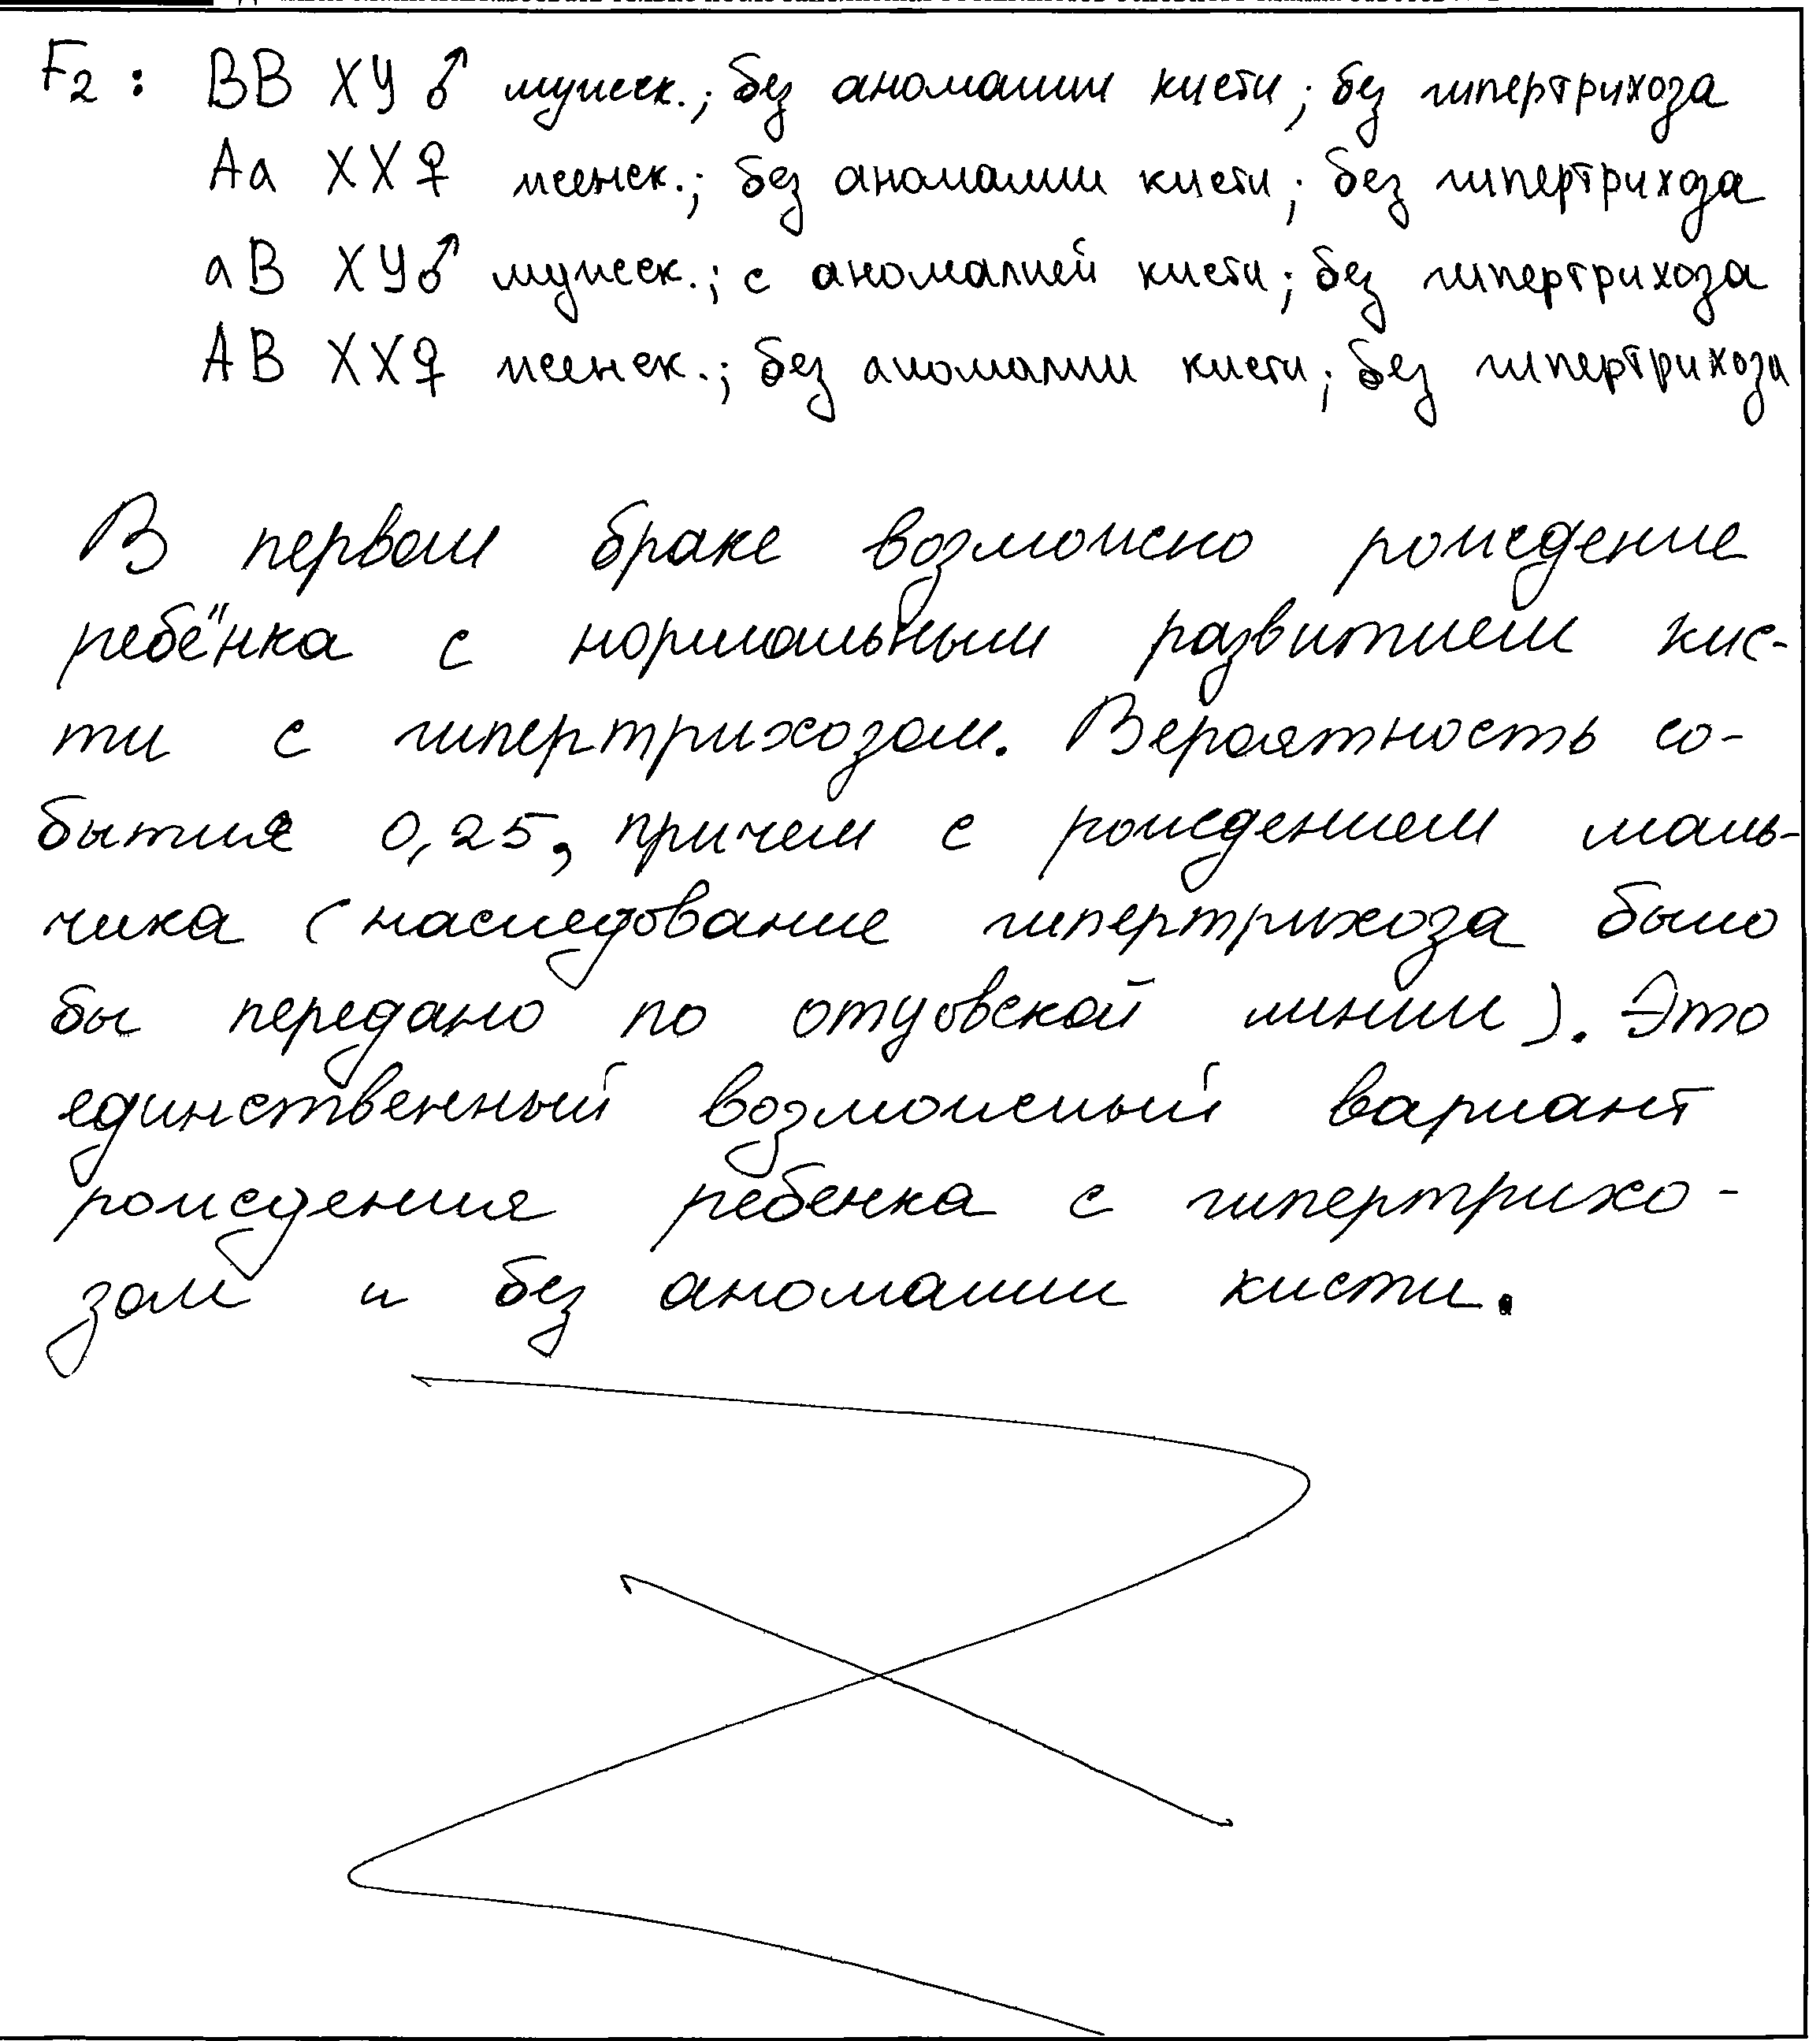 F₂ : BB XY ♂ мужск.; без аномалии кисти; без гипертрихоза
Aa XX ♀ женск.; без аномалии кисти; без гипертрихоза
aB XY ♂ мужск.; с аномалией кисти; без гипертрихоза
AB XX ♀ женск.; без аномалии кисти; без гипертрихоза
В первом браке возможно рождение
ребёнка с нормальным развитием кис-
ти с гипертрихозом. Вероятность со-
бытия 0,25, причем с рождением маль-
чика (наследование гипертрихоза было
бы передано по отцовской линии). Это
единственный возможный вариант
рождения ребенка с гипертрихо-
зом и без аномалии кисти.